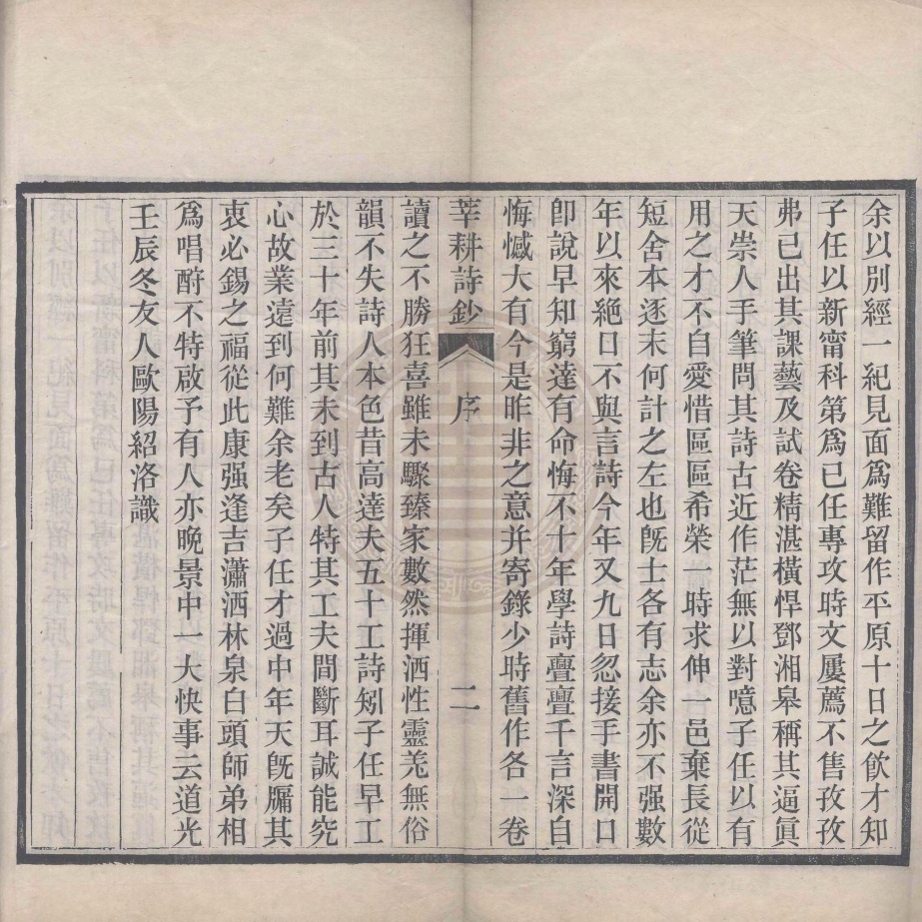 余以別經一紀見面爲難留作平原十日之飲才知
子任以新甯科第爲已任專攻時文屢薦不售孜孜
弗已出其課藝及試卷精湛橫悍鄧湘皋稱其逼眞
天崇人手筆問其詩古近作茫無以對噫子任以有
用之才不自愛惜區區希榮一時求伸一邑棄長從
短舍本逐末何計之左也旣士各有志余亦不强數
年以來絕口不與言詩今年又九日忽接手書開口
卽說早知窮達有命悔不十年學詩亹亹千言深自
悔憾大有今是昨非之意并寄錄少時舊作各一卷
莘耕詩鈔 序 二
讀之不勝狂喜雖未驟臻家數然揮洒性靈羌無俗
韻不失詩人本色昔高達夫五十工詩矧子任早工
於三十年前其未到古人特其工夫間斷耳誠能究
心故業遠到何難余老矣子任才過中年天旣牖其
衷必錫之福從此康强逢吉瀟洒林泉白頭師弟相
爲唱酧不特啟予有人亦晚景中一大快事云道光
壬辰冬友人歐陽紹洛識